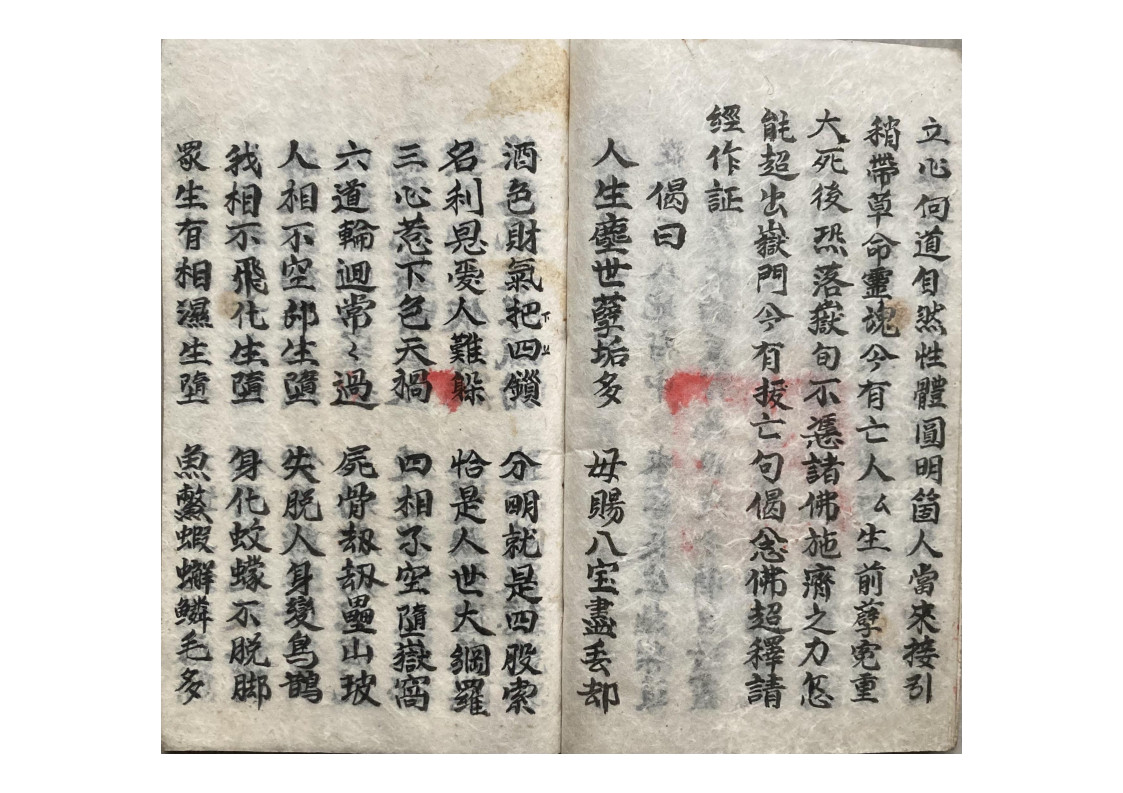 立心何道自然性體圓明箇人當來接引
稍帶草命靈魂今有亡人厶生前孽寃重
大死後恐落嶽句不憑諸佛施濟之力怎
能超出嶽門今有拔亡句偈念佛超釋請
經作証
偈曰
人生塵世孽垢多 毋賜八宝盡丢却
酒色財氣把四鎖 分明就是四股索
下 上
名利恩愛人難躲 恰是人世大綱羅
三心惹下色天禍 四相不空墮嶽窩
六道輪迴常〻過 屍骨刼刼壘山玻
人相不空卵生墮 失脱人身變鳥鵲
我相不飛化生墮 身化蚊蠓不脱脚
眾生有相濕生墮 魚鱉蝦蠏鱗毛多